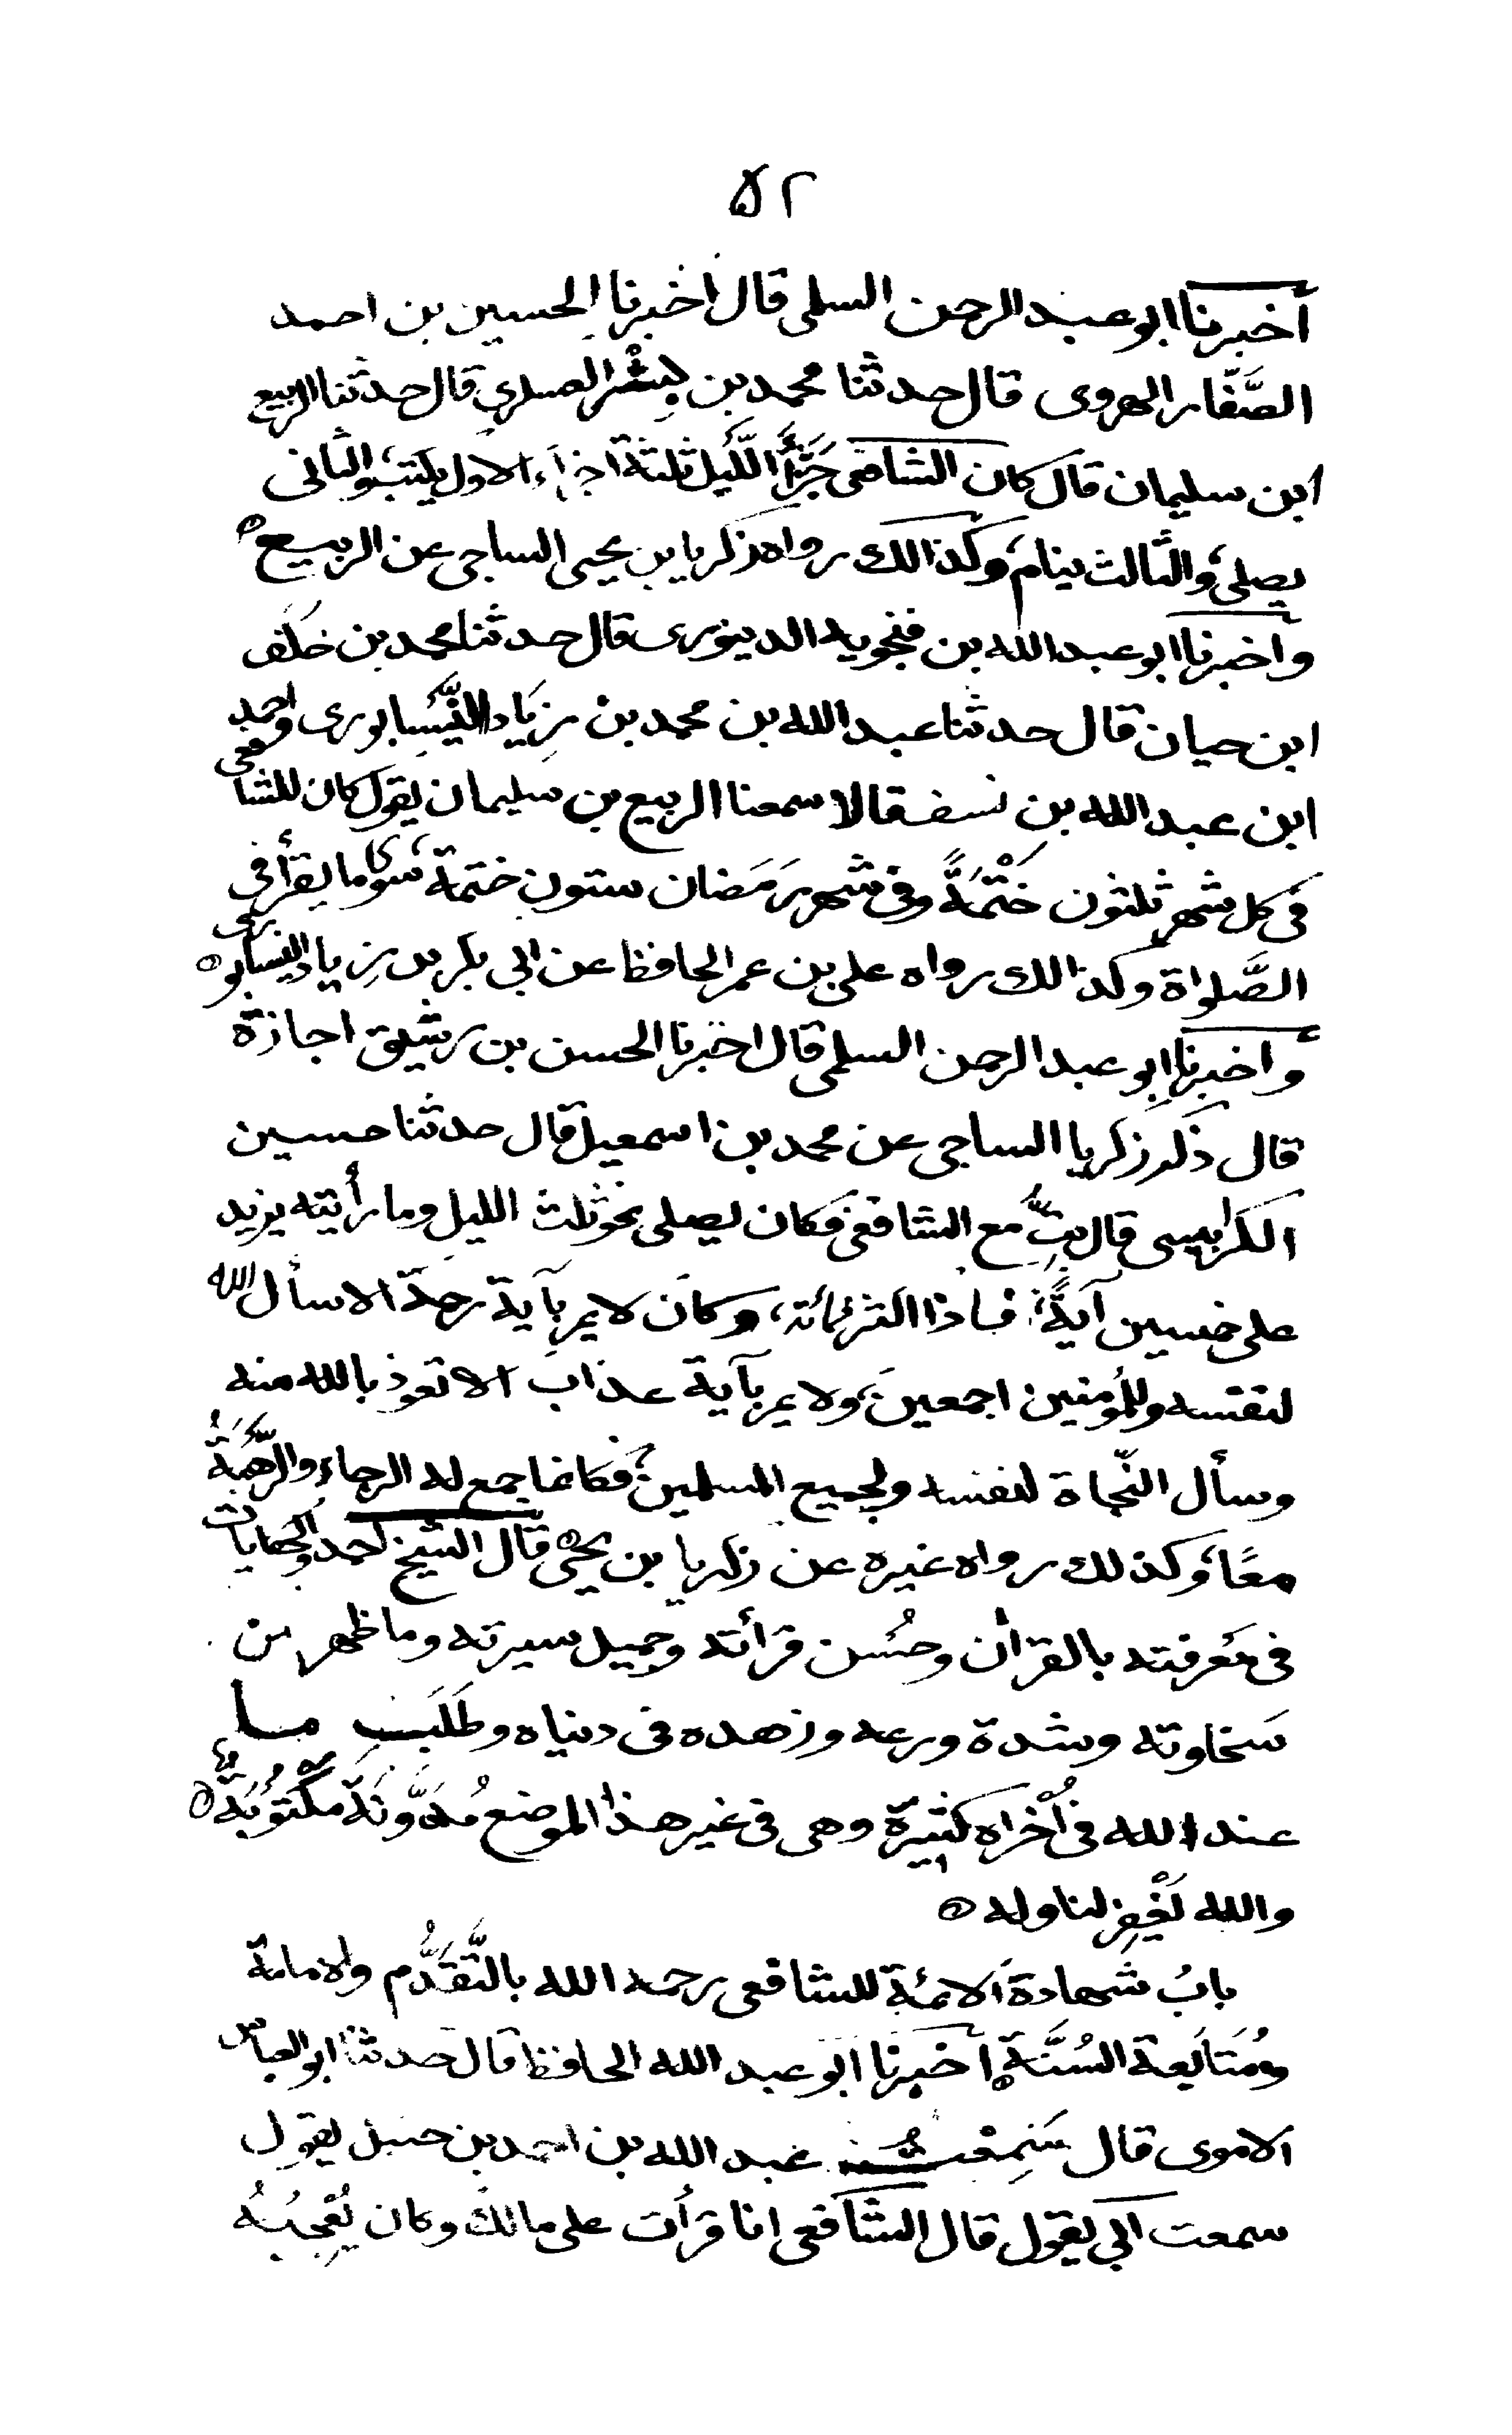 ٥٢
أخبرنا ابو عبد الرحمن السلمى قال اخبرنا الحسين بن احمد
الصَّفَّار الهروى قال حدثنا محمد بن بِشْر العسكري قال حدثنا الربيع
ابن سليمان قال كان الشافعى جَزَّأَ اللَّيل ثلثة اجزاء الاول يكتب، والثانى
يصلى، والثالث ينام، وكذالك رواه زكريا بن يحيى الساجى عن الربيع
واخبرنا ابو عبد الله بن فنجويه الدينورى قال حدثنا محمد بن خلف
ابن حيان قال حدثنا عبد الله بن محمد بن زِيَاد النَّيْسابورى واحمد
ابن عبد الله بن سيف قالا سمعنا الربيع بن سليمان يقول كان للشافعى
فى كل شهر ثلثون خَتْمَةً وفى شهر رَمَضان ستون ختمة، سوى ما يقرأ فى
الصَّلواة وكذالك رواه على بن عمر الحافظ عن ابى بكر بن زِياد النيسابورى
وأخبرنا ابو عبد الرحمن السلمى قال اخبرنا الحسن بن رشيق اجازة
قال ذكر زكريا الساجى عن محمد بن اسمعيل قال حدثنا حسين
الكرابيسى قال بِتُّ مع الشافعى فكان يصلى نحو ثلث الليل وما رأيته يزيد
على خمسين آيةً، فاذا اكثر فمائة، وكان لا يمر بآية رحمة الا سأل الله
لنفسه وللمؤمنين اجمعين، ولا يمر بآية عذاب الا تعوذ بالله منه
وسأل النّجاة لنفسه ولجميع المسلمين، فكانما جمع له الرجاء والرَّهْبَةُ
معًا، وكذلك رواه غيره عن زكريا بن يحيى قال الشيخ احمد والحكايات
فى مَعْرفته بالقرأن وحُسن قرأته وجميل سيرته وما ظهر من
سَخاوته وشدة ورعه وزهده فى دنياه وطَلَبِ ما
عند الله فى أُخْراه كثيرة وهى فى غير هذا الموضع مُدَوَّنَةٌ مَكْتُوبَةٌ
والله يَغْفِر لنا وله
بابُ شهادة الائمة للشافعى رحمه الله بالتَّقَدُّم والامامة
ومُتَابَعة السُنَّة اخبرنا ابو عبد الله الحافظ قال حدثنا ابو العباس
الاموى قال سَمِعْتُ عبد الله بن احمد بن حنبل يقول
سمعت ابى يقول قال الشافعى انا قرأت على مالك وكان يُعْجِبُهُ